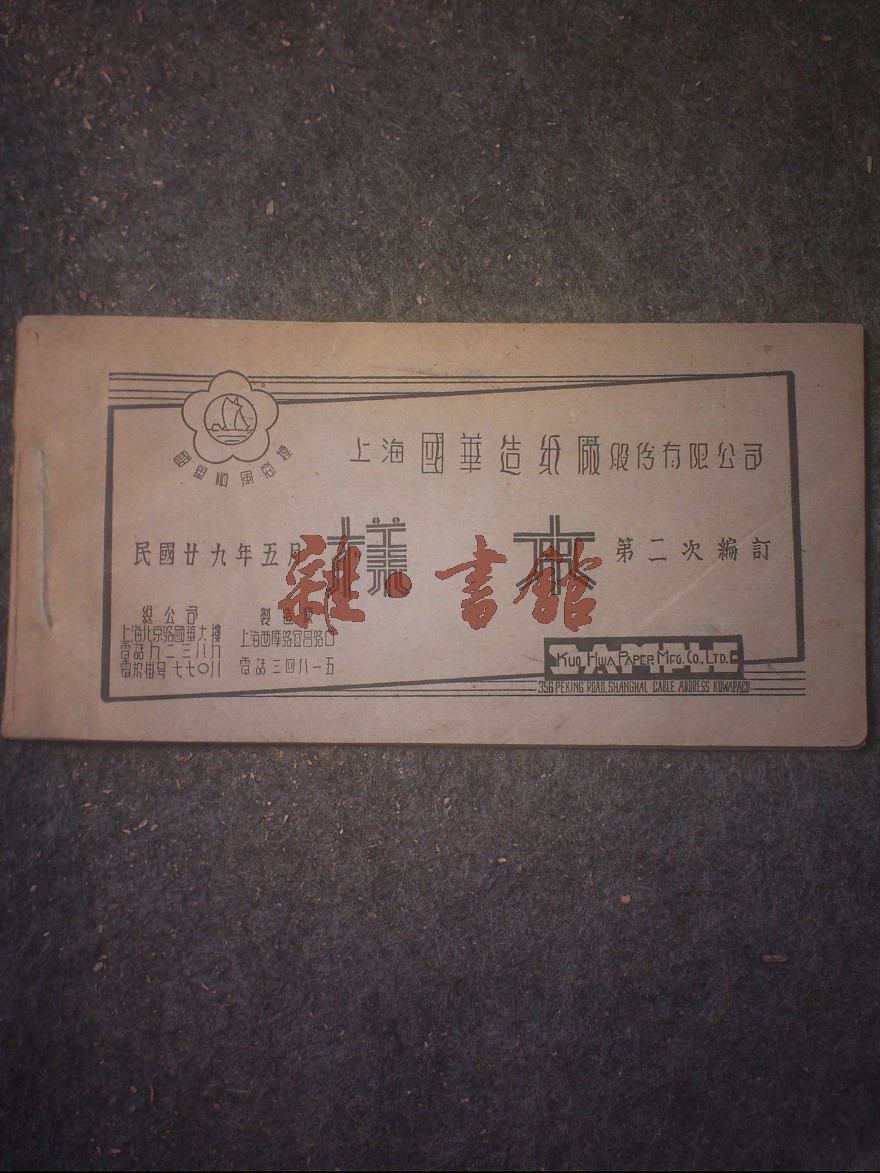 國華順風商標
上海國華造紙廠股份有限公司
民國廿九年五月
樣本
第二次編訂
雜·書館
總公司
上海北京路國華大樓
電話九二三八九
電報掛号七七〇八
製造廠
上海西摩路宜昌路口
電話三四八一五
SAMPLE
KUO HWA PAPER MFG. CO., LTD.
356 PEKING ROAD, SHANGHAI. CABLE ADDRESS KOWAPACO